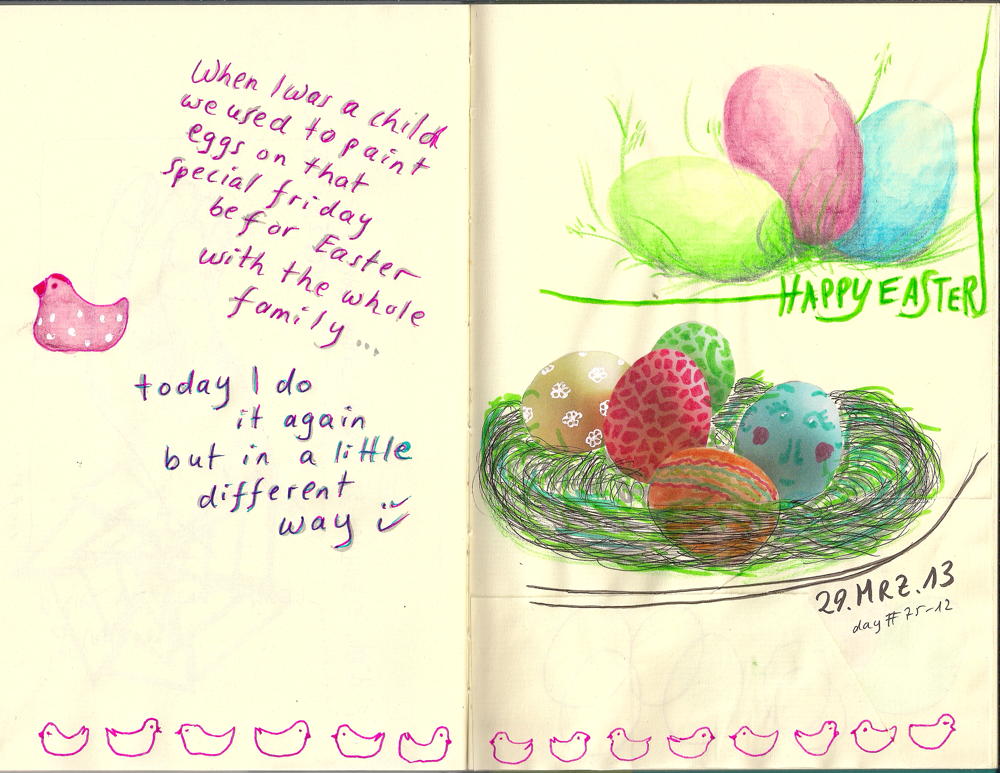 When I was a child
we used to paint
eggs on that
special friday
befor Easter
with the whole
family ...
today I do
it again
but in a little
different
way
HAPPY EASTER
29.MRZ.13
day # 75-12